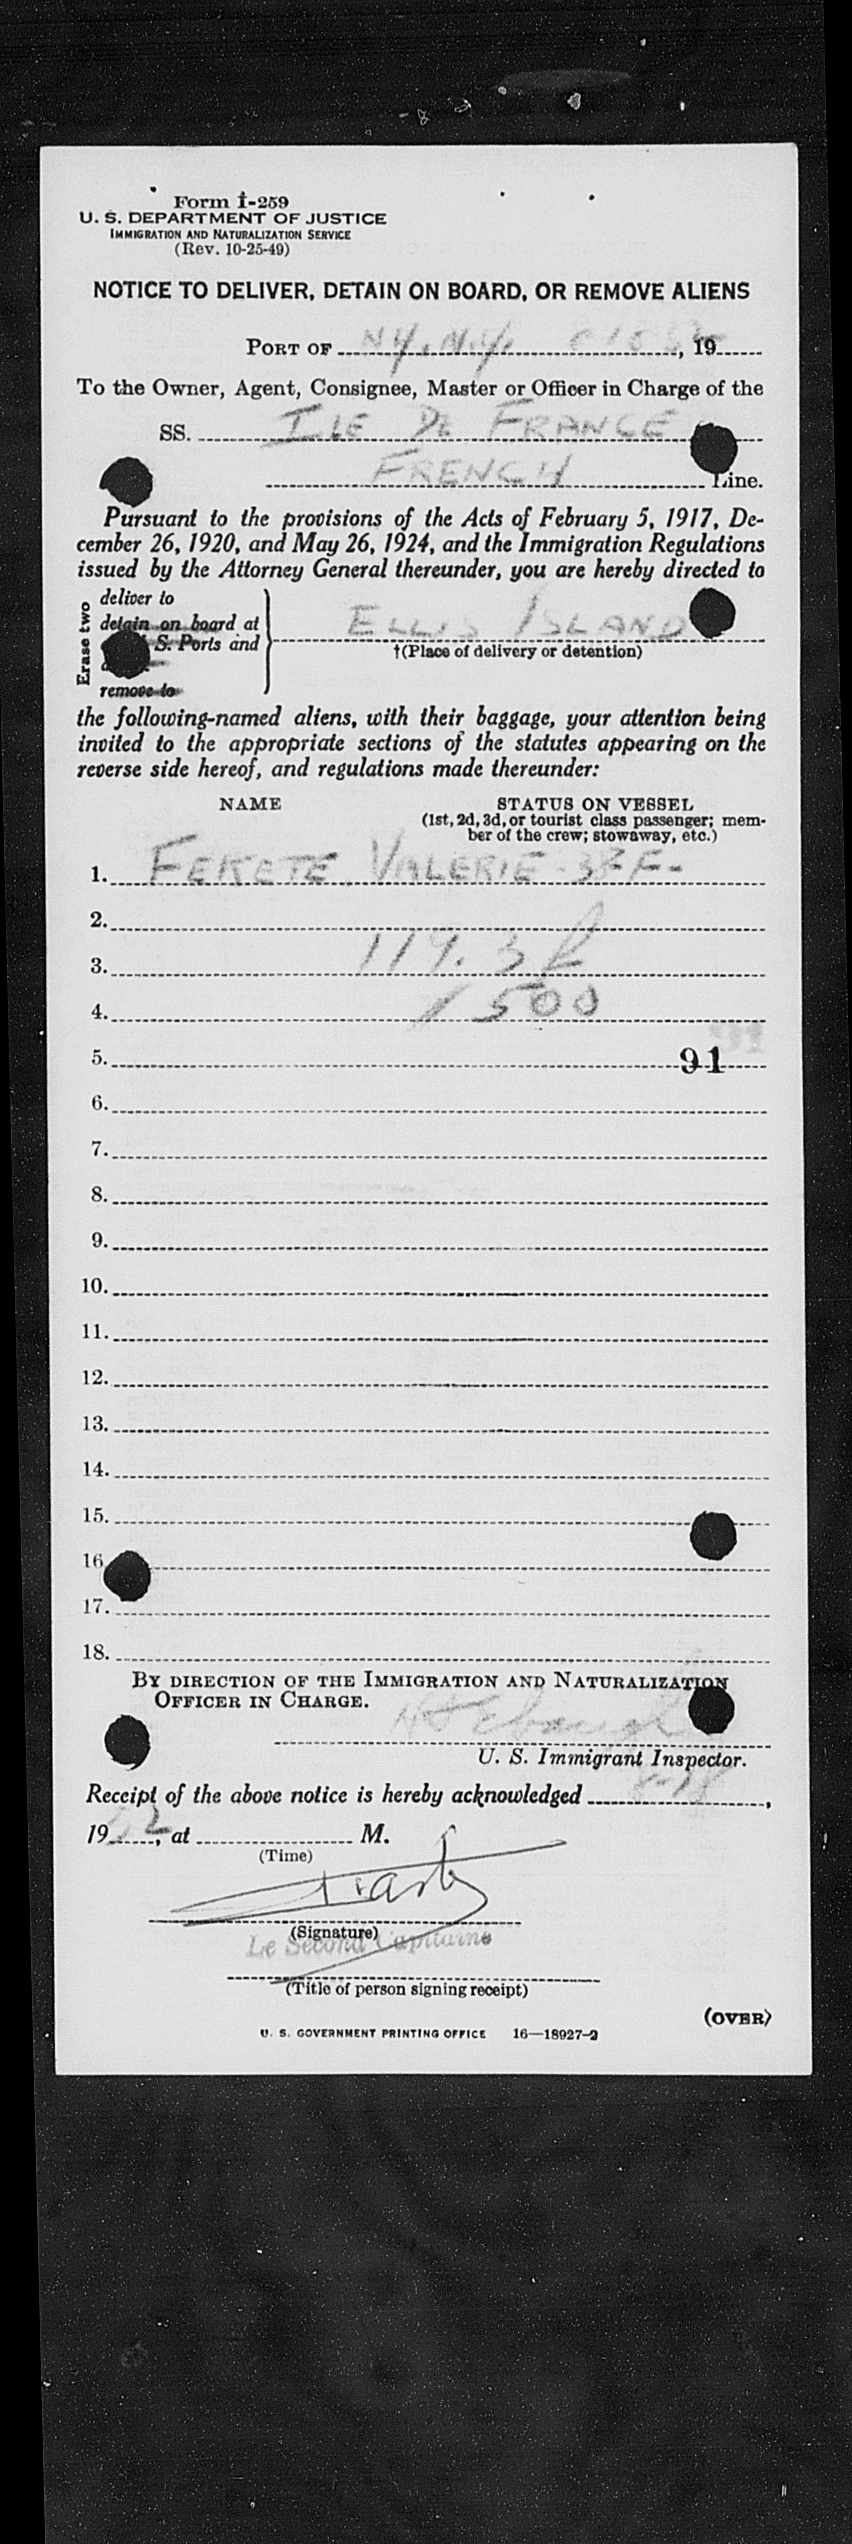 Form I-259
U. S. DEPARTMENT OF JUSTICE
IMMIGRATION AND NATURALIZATION SERVICE
(Rev. 10-25-49)
NOTICE TO DELIVER, DETAIN ON BOARD, OR REMOVE ALIENS
PORT OF N.Y., N.Y. , 19
To the Owner, Agent, Consignee, Master or Officer in Charge of the
SS. ILE DE FRANCE
FRENCH Line.
Pursuant to the provisions of the Acts of February 5, 1917, De-
cember 26, 1920, and May 26, 1924, and the Immigration Regulations
issued by the Attorney General thereunder, you are hereby directed to
Erase two
deliver to
detain on board at
S. Ports and
remove to
ELLIS ISLAND
†(Place of delivery or detention)
the following-named aliens, with their baggage, your attention being
invited to the appropriate sections of the statutes appearing on the
reverse side hereof, and regulations made thereunder:
NAME STATUS ON VESSEL
(1st, 2d, 3d, or tourist class passenger; mem-
ber of the crew; stowaway, etc.)
1. FEKETE, VALERIE - 37 F-
2.
3.
4. 1500
5. 91
6.
7.
8.
9.
10.
11.
12.
13.
14.
15.
16
17.
18.
BY DIRECTION OF THE IMMIGRATION AND NATURALIZATION
OFFICER IN CHARGE.
U. S. Immigrant Inspector.
Receipt of the above notice is hereby acknowledged ,
19 , at M.
(Time)
(Signature)
Le Second Capitaine
(Title of person signing receipt)
(OVER)
U. S. GOVERNMENT PRINTING OFFICE 16—18927-2